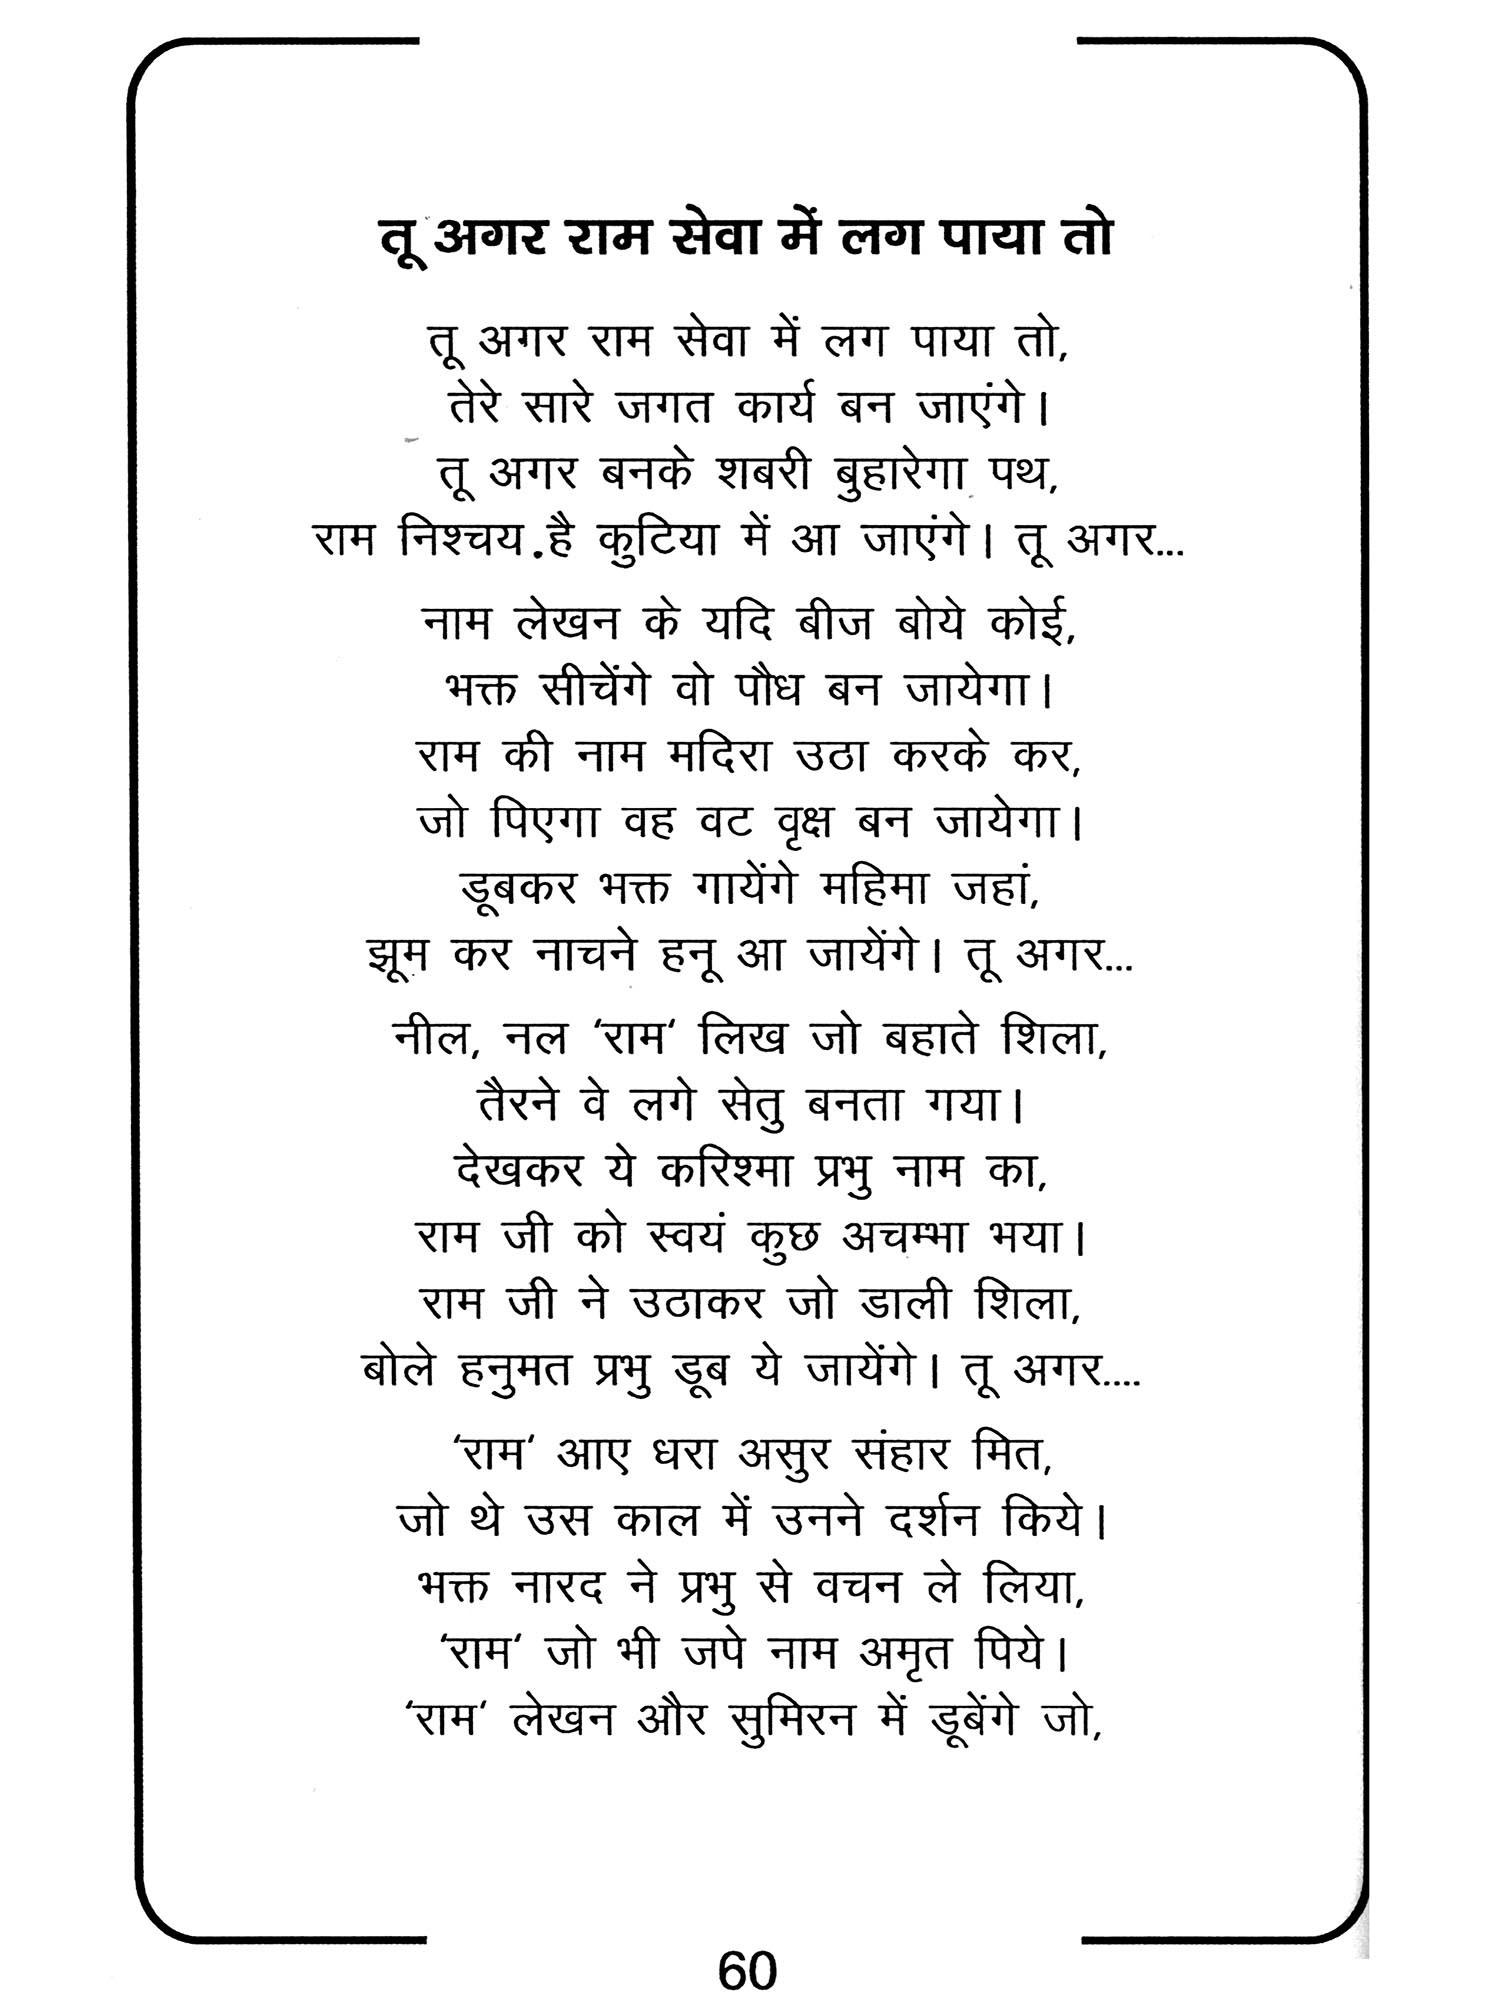 तू अगर राम सेवा में लग पाया तो
तू अगर राम सेवा में लग पाया तो,
तेरे सारे जगत कार्य बन जाएंगे।
तू अगर बनके शबरी बुहारेगा पथ,
राम निश्चय है कुटिया में आ जाएंगे। तू अगर...
नाम लेखन के यदि बीज बोये कोई,
भक्त सीचेंगे वो पौध बन जायेगा।
राम की नाम मदिरा उठा करके कर,
जो पिएगा वह वट वृक्ष बन जायेगा।
डूबकर भक्त गायेंगे महिमा जहां,
झूम कर नाचने हनू आ जायेंगे। तू अगर...
नील, नल ‘राम‘ लिख जो बहाते शिला,
तैरने वे लगे सेतु बनता गया।
देखकर ये करिश्मा प्रभु नाम का,
राम जी को स्वयं कुछ अचम्भा भया।
राम जी ने उठाकर जो डाली शिला,
बोले हनुमत प्रभु डूब ये जायेंगे। तू अगर....
‘राम‘ आए धरा असुर संहार मित,
जो थे उस काल में उनने दर्शन किये।
भक्त नारद ने प्रभु से वचन ले लिया,
‘राम‘ जो भी जपे नाम अमृत पिये।
‘राम‘ लेखन और सुमिरन में डूबेंगे जो,
60